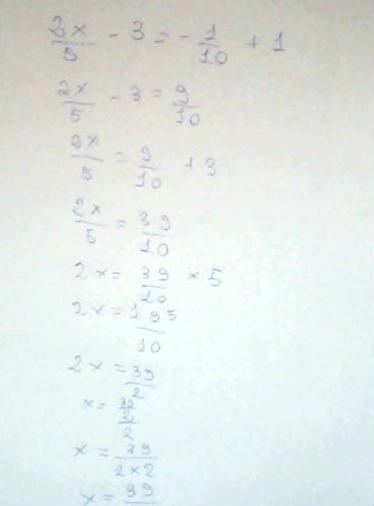 2x/5 - 3 = - 1/10 + 1
2x/5 - 3 = 9/10
2x/5 = 9/10 + 3
2x/5 = 39/10
2x = 39/10 × 5
2x = 195/10
2x = 39/2
x = 39/2/2
x = 39/2×2
x = 39